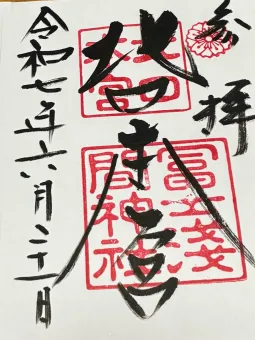 参拝
北口本宮
北口
本宮
冨士淺
間神社
令和七年六月二十一日